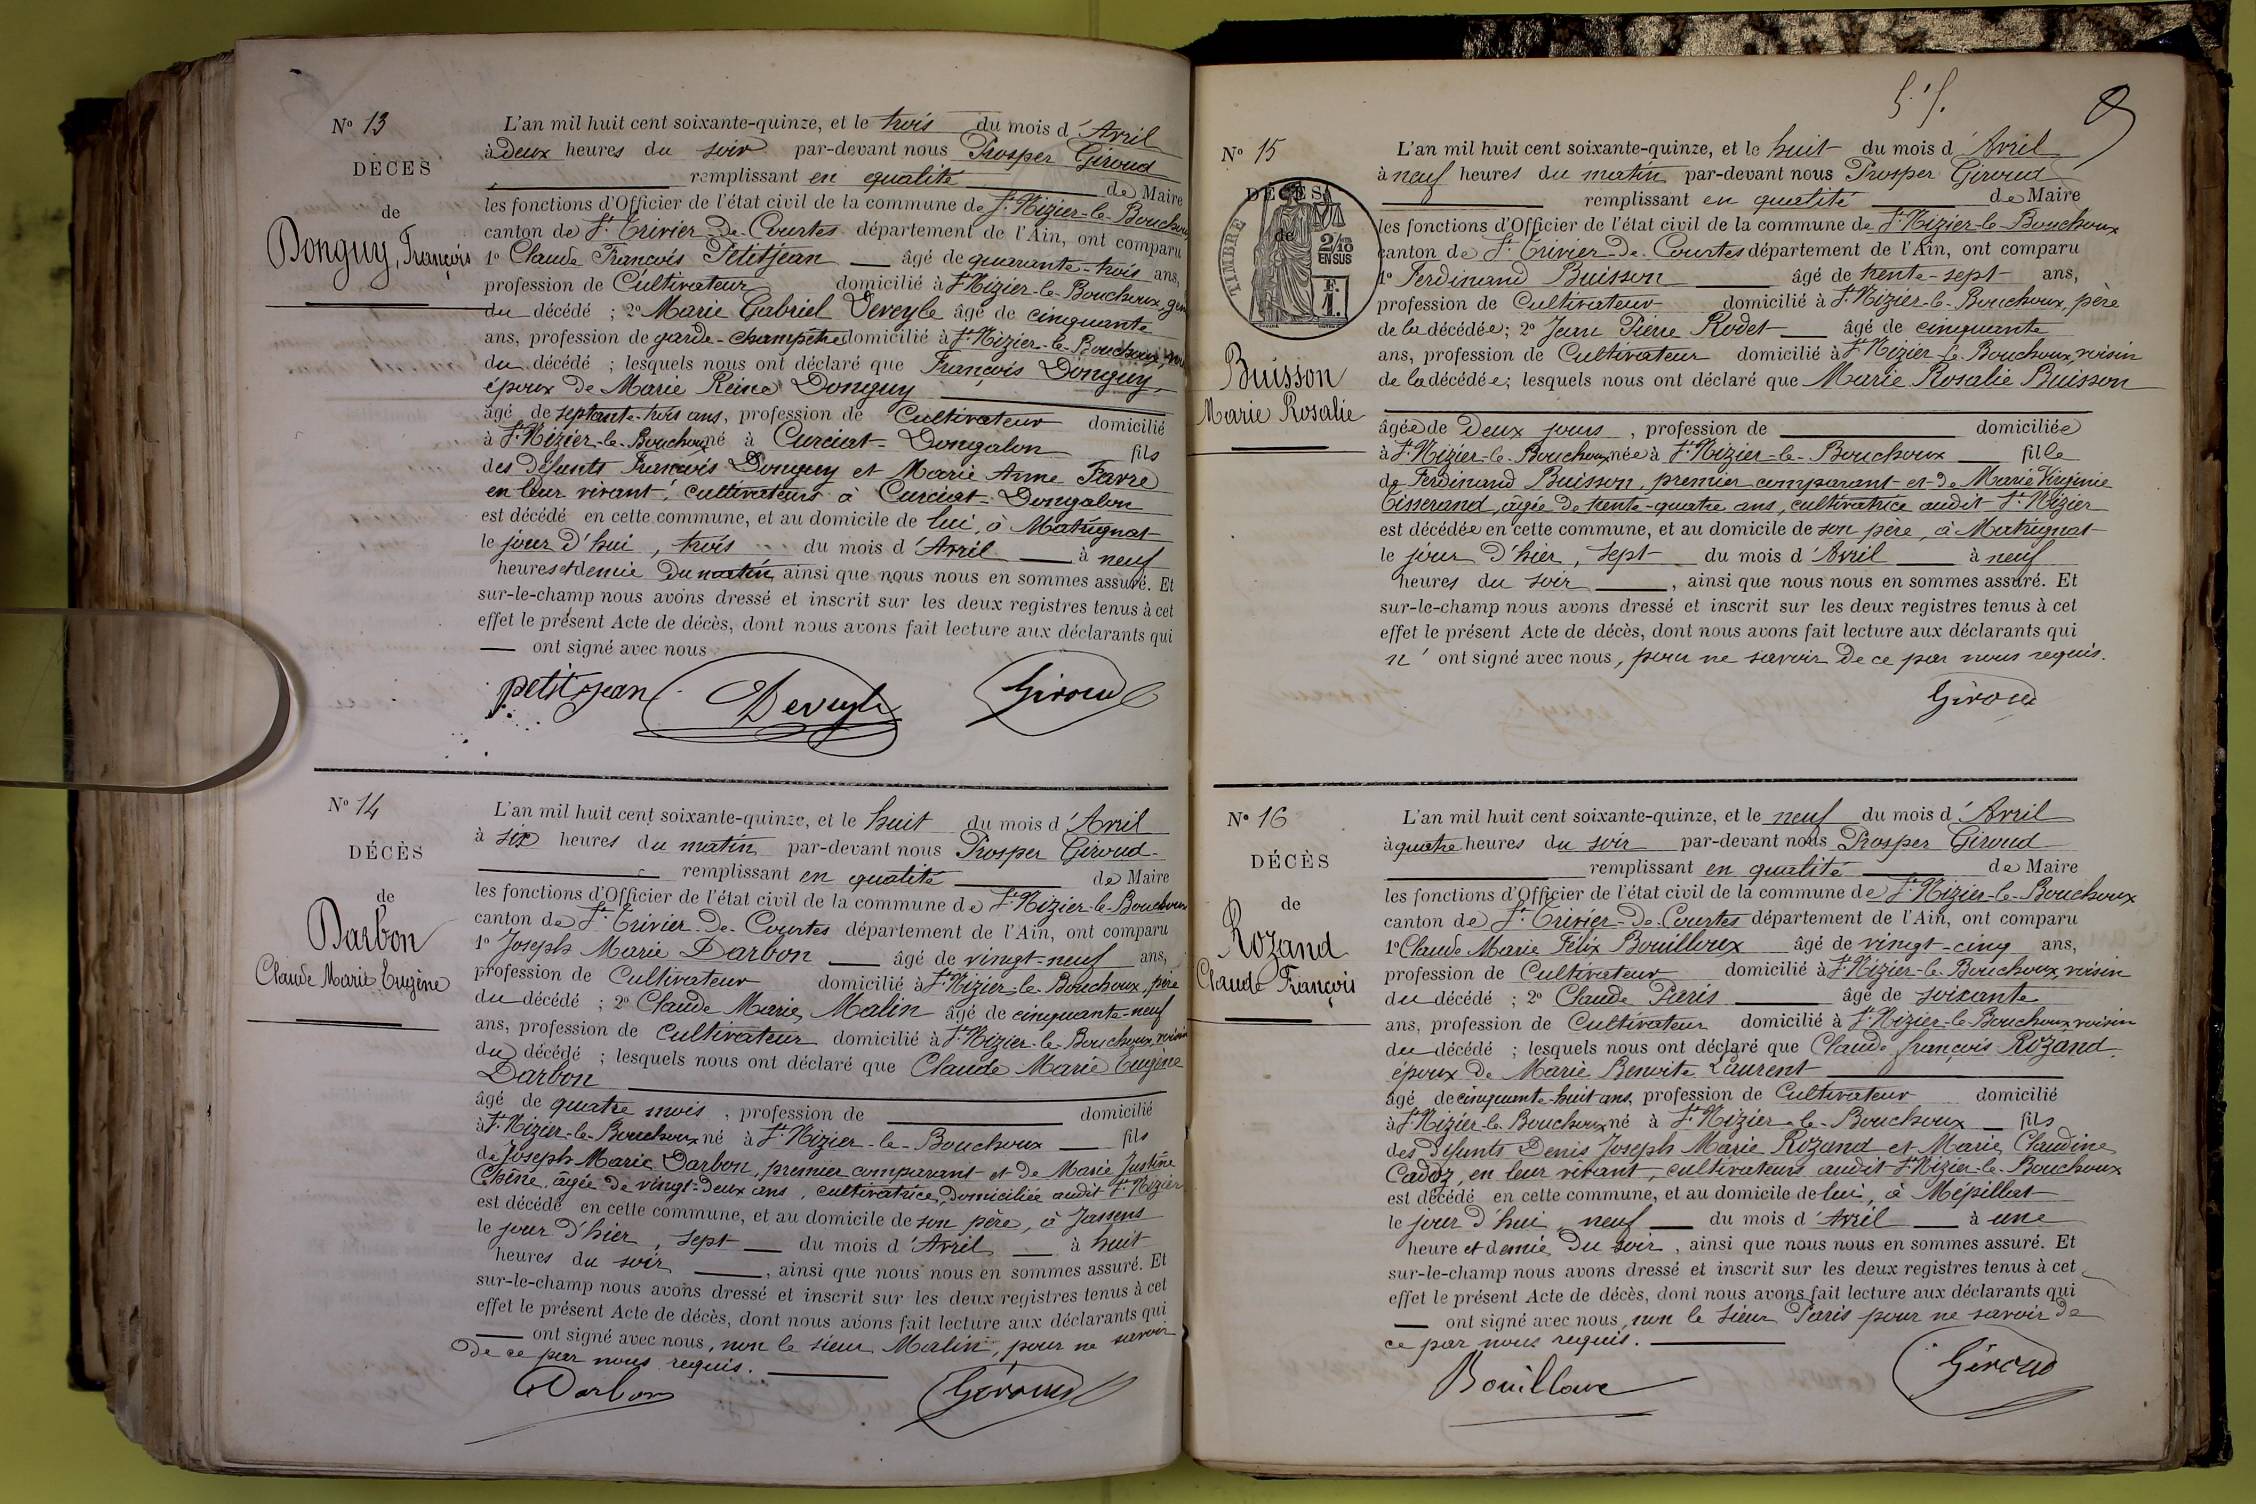 N° 13
DÉCÈS
de
Donguy, François
L'an mil huit cent soixante-quinze, et le trois du mois d'Avril
à deux heures du soir par-devant nous Prosper Giroud
remplissant en qualité de Maire
les fonctions d'Officier de l'état civil de la commune de St Nizier-le-Bouchoux
canton de St Trivier-de-Courtes département de l'Ain, ont comparu
1° Claude François Petitjean âgé de quarante-trois ans,
profession de Cultivateur domicilié à St Nizier-le-Bouchoux,
du décédé ; 2° Marie Gabriel Deveyle âgé de cinquante
ans, profession de garde-champêtre domicilié à St Nizier-le-Bouchoux,
du décédé ; lesquels nous ont déclaré que François Donguy,
époux de Marie Reine Donguy
âgé de septante-trois ans, profession de Cultivateur domicilié
à St Nizier-le-Bouchoux né à Curciat-Dongalon fils
des défunts François Donguy et Marie Anne Favre
en leur vivant, cultivateurs à Curciat-Dongalon
est décédé en cette commune, et au domicile de lui, à Matrignat
le jour d'hui, trois du mois d'Avril à neuf
heures et demie du matin, ainsi que nous nous en sommes assuré. Et
sur-le-champ nous avons dressé et inscrit sur les deux registres tenus à cet
effet le présent Acte de décès, dont nous avons fait lecture aux déclarants qui
ont signé avec nous
petitjean Deveyle Giroud
N° 14
DÉCÈS
de
Darbon
Claude Marie Eugène
L'an mil huit cent soixante-quinze, et le huit du mois d'Avril
à six heures du matin par-devant nous Prosper Giroud
remplissant en qualité de Maire
les fonctions d'Officier de l'état civil de la commune de St Nizier-le-Bouchoux
canton de St Trivier-de-Courtes département de l'Ain, ont comparu
1° Joseph Marie Darbon âgé de vingt-neuf ans,
profession de Cultivateur domicilié à St Nizier-le-Bouchoux, père
du décédé ; 2° Claude Marie Malin âgé de cinquante-neuf
ans, profession de Cultivateur domicilié à St Nizier-le-Bouchoux, voisin
du décédé ; lesquels nous ont déclaré que Claude Marie Eugène
Darbon
âgé de quatre mois, profession de domicilié
à St Nizier-le-Bouchoux né à St Nizier-le-Bouchoux fils
de Joseph Marie Darbon, premier comparant et de Marie Justine
Chêne, âgée de vingt-deux ans, cultivatrice, domiciliée audit St Nizier
est décédé en cette commune, et au domicile de son père, à Jassens
le jour d'hier, sept du mois d'Avril à huit
heures du soir, ainsi que nous nous en sommes assuré. Et
sur-le-champ nous avons dressé et inscrit sur les deux registres tenus à cet
effet le présent Acte de décès, dont nous avons fait lecture aux déclarants qui
ont signé avec nous, non le sieur Malin, pour ne savoir
de ce par nous requis.
Darbon Giroud
8
N° 15
DÉCÈS
de
TIMBRE
2/10 EN SUS
F. 1.
Buisson
Marie Rosalie
L'an mil huit cent soixante-quinze, et le huit du mois d'Avril
à neuf heures du matin par-devant nous Prosper Giroud
remplissant en qualité de Maire
les fonctions d'Officier de l'état civil de la commune de St Nizier-le-Bouchoux
canton de St Trivier-de-Courtes département de l'Ain, ont comparu
1° Ferdinand Buisson âgé de trente-sept ans,
profession de Cultivateur domicilié à St Nizier-le-Bouchoux, père
de la décédée ; 2° Jean Pierre Rodet âgé de cinquante
ans, profession de Cultivateur domicilié à St Nizier-le-Bouchoux, voisin
de la décédée ; lesquels nous ont déclaré que Marie Rosalie Buisson
âgée de deux jours, profession de domiciliée
à St Nizier-le-Bouchoux née à St Nizier-le-Bouchoux fille
de Ferdinand Buisson, premier comparant et de Marie Virginie
Tisserand, âgée de trente-quatre ans, cultivatrice audit St Nizier
est décédée en cette commune, et au domicile de son père, à Matrignat
le jour d'hier, sept du mois d'Avril à neuf
heures du soir, ainsi que nous nous en sommes assuré. Et
sur-le-champ nous avons dressé et inscrit sur les deux registres tenus à cet
effet le présent Acte de décès, dont nous avons fait lecture aux déclarants qui
n'ont signé avec nous, pour ne savoir de ce par nous requis.
Giroud
N° 16
DÉCÈS
de
Rozand
Claude François
L'an mil huit cent soixante-quinze, et le neuf du mois d'Avril
à quatre heures du soir par-devant nous Prosper Giroud
remplissant en qualité de Maire
les fonctions d'Officier de l'état civil de la commune de St Nizier-le-Bouchoux
canton de St Trivier-de-Courtes département de l'Ain, ont comparu
1° Claude Marie Félix Bouilloux âgé de vingt-cinq ans,
profession de Cultivateur domicilié à St Nizier-le-Bouchoux, voisin
du décédé ; 2° Claude Paris âgé de soixante
ans, profession de Cultivateur domicilié à St Nizier-le-Bouchoux, voisin
du décédé ; lesquels nous ont déclaré que Claude françois Rozand,
époux de Marie Benoite Laurent
âgé de cinquante-huit ans, profession de Cultivateur domicilié
à St Nizier-le-Bouchoux né à St Nizier-le-Bouchoux fils
des défunts Denis Joseph Marie Rozand et Marie Claudine
Cadoz, en leur vivant, cultivateurs audit St Nizier-le-Bouchoux
est décédé en cette commune, et au domicile de lui, à Mépillat
le jour d'hui, neuf du mois d'Avril à une
heure et demie du soir, ainsi que nous nous en sommes assuré. Et
sur-le-champ nous avons dressé et inscrit sur les deux registres tenus à cet
effet le présent Acte de décès, dont nous avons fait lecture aux déclarants qui
ont signé avec nous, non le sieur Paris pour ne savoir de
ce par nous requis.
Bouilloux Giroud